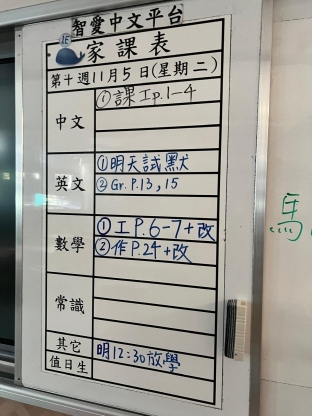 智愛中文平台
1E
家課表
第十週11月5日(星期二)
中文
①課工p.1-4
英文
①明天試默
②Gr.P.13,15
數學
①工P.6-7+改
②作P.24+改
常識
其它
值日生
明12:30放學
馬